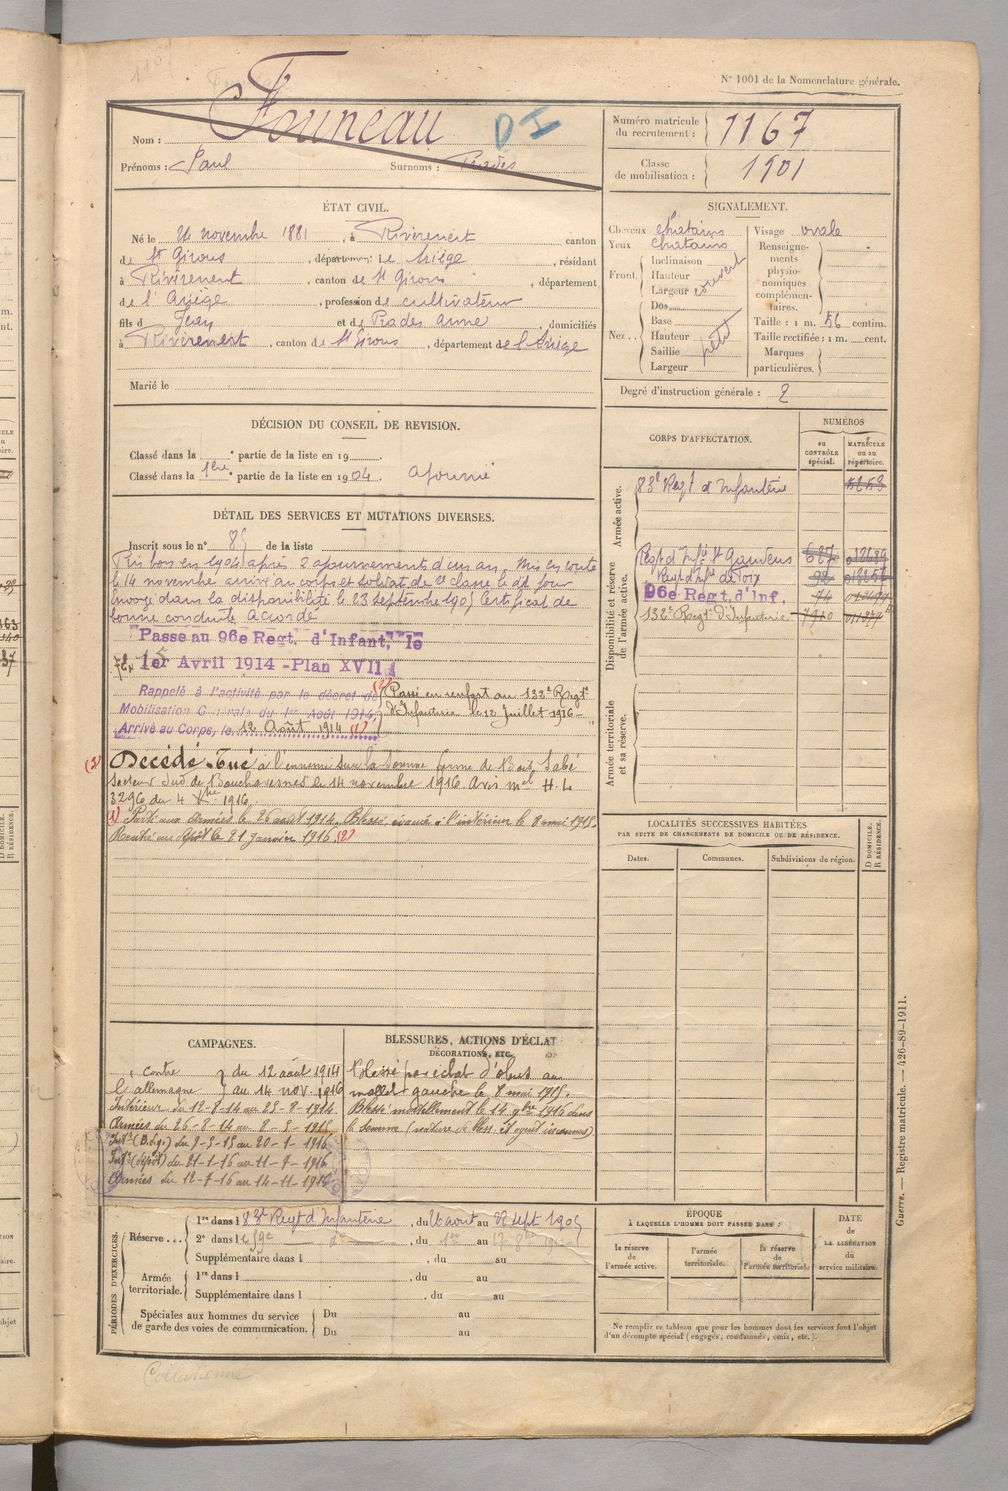 N° 1001 de la Nomenclature générale.
Nom : Founeau
D I
Prénoms : Paul Surnoms : Prades
Numéro matricule du recrutement : 1167
Classe de mobilisation : 1901
ÉTAT CIVIL.
Né le 21 novembre 1881, à Rivèrenert canton
de St Girons, département de l'Ariège, résidant
à Rivèrenert, canton de St Girons, département
de l'Ariège, profession de cultivateur
fils de Jean et de Prades Anne, domiciliés
à Rivèrenert, canton de St Girons, département de l'Ariège
Marié le
SIGNALEMENT.
Cheveux chatains
Yeux chatains
Front. Inclinaison
Hauteur
Largeur couvert
Nez. Dos
Base
Hauteur
Saillie petit
Largeur
Visage ovale
Renseignements physionomiques complémentaires.
Taille : 1 m. 56 centim.
Taille rectifiée : 1 m. cent.
Marques particulières.
Degré d'instruction générale : 2
DÉCISION DU CONSEIL DE REVISION.
Classé dans la e partie de la liste en 19
Classé dans la 1ère partie de la liste en 1904 ajourné
DÉTAIL DES SERVICES ET MUTATIONS DIVERSES.
Inscrit sous le n° 85 de la liste
Pris bon en 1904 après 2 ajournements d'un an. Mis en route
le 14 novembre arrivé au corps et soldat de 2e classe le dit jour
Envoyé dans la disponibilité le 23 septembre 1905 Certificat de
bonne conduite Accordé
Passe au 96e Regt. d'Infant, le
1er Avril 1914 - Plan XVII
Rappelé à l'activité par le décret de
Mobilisation Générale du 1er Août 1914,
Arrivé au Corps, le 12 Août 1914 (1)
(2) Passé en renfort au 132e Regt
d'Infanterie le 12 Juillet 1916 -
(3) Décédé - Tué à l'ennemi sur la Somme ferme de Bois Labé
secteur Sud de Bouchavesnes le 14 novembre 1916. Avis mel H. L
3296 du 4 Xbre 1916.
(1) Parti aux Armées le 26 août 1914. Blessé évacué à l'intérieur le 8 mai 1915.
Rentré au dépôt le 21 Janvier 1916 (2)
CORPS D'AFFECTATION.
NUMÉROS
au contrôle spécial.
matricule ou au répertoire.
Armée active.
83e Regt d'Infanterie 5253
Disponibilité et réserve de l'armée active.
Regt d'Infie St Gaudens 627
Regt d'Infie de Foix
96e Régt. d'Inf. 74
132e Regt d'Infanterie
Armée territoriale et sa réserve.
LOCALITÉS SUCCESSIVES HABITÉES
PAR SUITE DE CHANGEMENTS DE DOMICILE OU DE RÉSIDENCE.
Dates. Communes. Subdivisions de région. D DOMICILE. R RÉSIDENCE.
CAMPAGNES.
contre l'allemagne du 12 août 1914
au 14 nov. 1916
Intérieur du 12-8-14 au 25-8-1914
Armées du 26-8-14 au 8-5-1915
Intr (Bldge) du 9-5-15 au 20-1-1916
Intr (dépôt) du 21-1-16 au 11-7-1916
Armées du 12-7-16 au 14-11-1916
BLESSURES, ACTIONS D'ÉCLAT
DÉCORATIONS, ETC.
Blessé par éclat d'obus au
mollet gauche le 8 mai 1915.
Blessé mortellement le 14 9bre 1916 dans
la Somme (nature de bless. et agent inconnus)
PÉRIODES D'EXERCICES.
Réserve... 1re dans le 83e Regt d'Infanterie, du 26 aout au 22 Sept 1908
2e dans le 59e do, du 1er au 17
Supplémentaire dans l , du au
Armée territoriale. 1re dans l , du au
Supplémentaire dans l , du au
Spéciales aux hommes du service de garde des voies de communication. Du au
Du au
ÉPOQUE
À LAQUELLE L'HOMME DOIT PASSER DANS :
la réserve de l'armée active.
l'armée territoriale.
la réserve de l'armée territoriale.
DATE DE LA LIBÉRATION du service militaire.
Ne remplir ce tableau que pour les hommes dont les services font l'objet
d'un décompte spécial (engagés, condamnés, omis, etc.).
Guerre. — Registre matricule. — 426-89-1911.